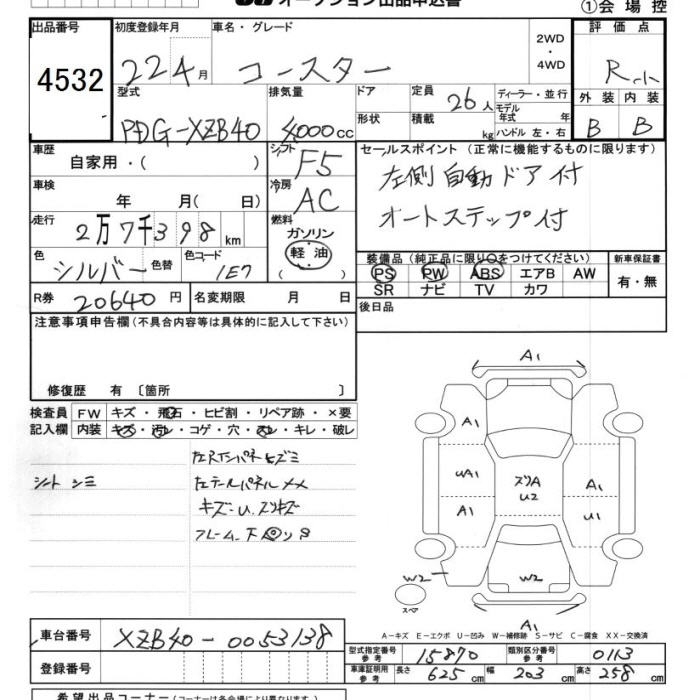 オークション出品申込書
①会場控
出品番号 初度登録年月 車名・グレード 2WD・4WD 評価点
4532 22年4月 コースター R
型式 排気量 ドア 定員 26人 ディーラー・並行 外装 内装
PDG-XZB40 4000cc 形状 積載 kg モデル年式 年 ハンドル 左・右 B B
車歴 自家用・( ) シフト F5 セールスポイント (正常に機能するものに限ります)
車検 年 月( 日) 冷房 AC 左側自動ドア付
走行 2万7千398km 燃料 ガソリン 軽油 ( ) オートステップ付
色 シルバー 色替 色コード 1E7 装備品 (純正品に限り○をつけてください) 新車保証書
PS PW ABS エアB AW 有・無
SR ナビ TV カワ
R券 20640円 名変期限 月 日 後日品
注意事項申告欄 (不具合内容等は具体的に記入して下さい)
修復歴 有 〔箇所 〕
検査員 FW キズ・飛石・ヒビ割・リペア跡・×要
記入欄 内装 キズ・汚レ・コゲ・穴・スレ・キレ・破レ
シート シミ
左テールパネル XX
キズ・U.スリキズ
A1
A1
UA1 スリA U2 A1
A1 U1
W2 W2
スペア
A1
A-キズ E-エクボ U-凹み W-補修跡 S-サビ C-腐食 XX-交換済
車台番号 XZB40-0053138
型式指定番号 参考 15870 類別区分番号 参考 0113
登録番号 車庫証明用 参考 長さ 625cm 幅 203cm 高さ 258cm
希望出品コーナー (コーナーは各会場により異なります)